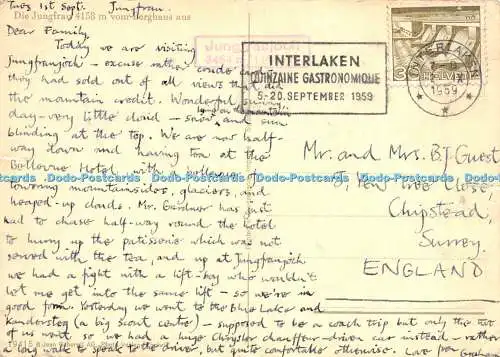 Tues 1st Sept. Jungfrau.
Die Jungfrau 4158 m vom Berghaus aus
Dear Family,
Today we are visiting
Jungfraujoch – excuse rather crude card
they had sold out of all views that did
the mountain credit. Wonderful sunny
day – very little cloud – snow and sun
blinding at the top. We are now half-
way down and having tea at the
Bellevue Hotel with a
towering mountainsides, glaciers, and
heaped-up clouds. Mr. Gardner has just
had to chase half-way round the hotel
to hurry up the patisserie which was not
served with the tea, and up at Jungfraujoch
we had a fight with a lift-boy who wouldn't
let me get into the same lift – so we're in
good form. Yesterday we went to the Blue Lake and
Kandersteg (a big scout centre) – supposed to be a coach trip but only the
of us went so we had a huge Chrysler chauffeur-driven car instead, rather
a long walk to speak to the driver, but quite comfortable otherwise. Love
Jungfraujoch
INTERLAKEN
QUINZAINE GASTRONOMIQUE
5-20. SEPTEMBER 1959
INTERLAKEN
1959
HELVETIA
Mr. and Mrs. B.J. Guest
5, Yew Tree Close,
Chipstead,
Surrey.
ENGLAND
Dodo-Postcards Dodo-Postcards Dodo-Postcards Dodo-Postcards
19415